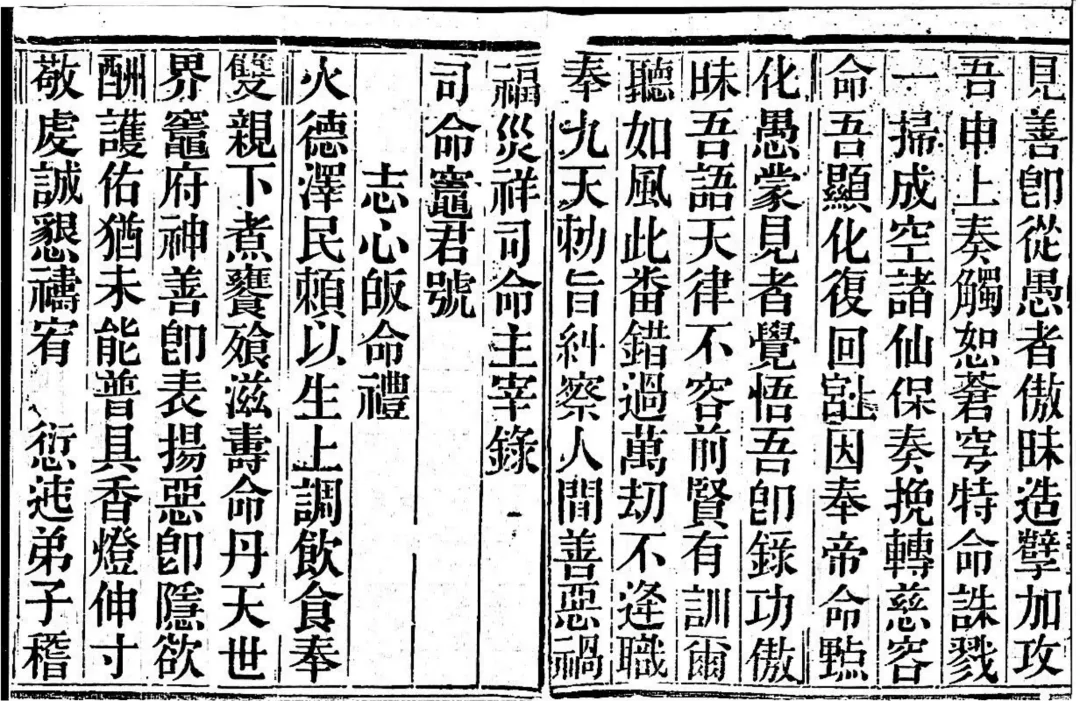 見善卽從愚者傲昧造孽加攻
吾申上奏觸恕蒼穹特命誅戮
一掃成空諸仙保奏挽轉慈容
命吾顯化復回因奉帝命㸃
化愚蒙見者覺悟吾卽錄功傲
昧吾語天律不容前賢有訓爾
聽如風此畨錯過萬刼不逢職
奉九天勅旨糾察人間善惡禍
福災祥司命主宰錄
司命竈君號
志心皈命禮
火德澤民賴以生上調飲食奉
雙親下煮饔飱滋壽命丹天世
界竈府神善卽表揚惡卽隱欲
酬護佑猶未能普具香燈伸寸
敬虔誠懇禱宥　愆迍弟子稽